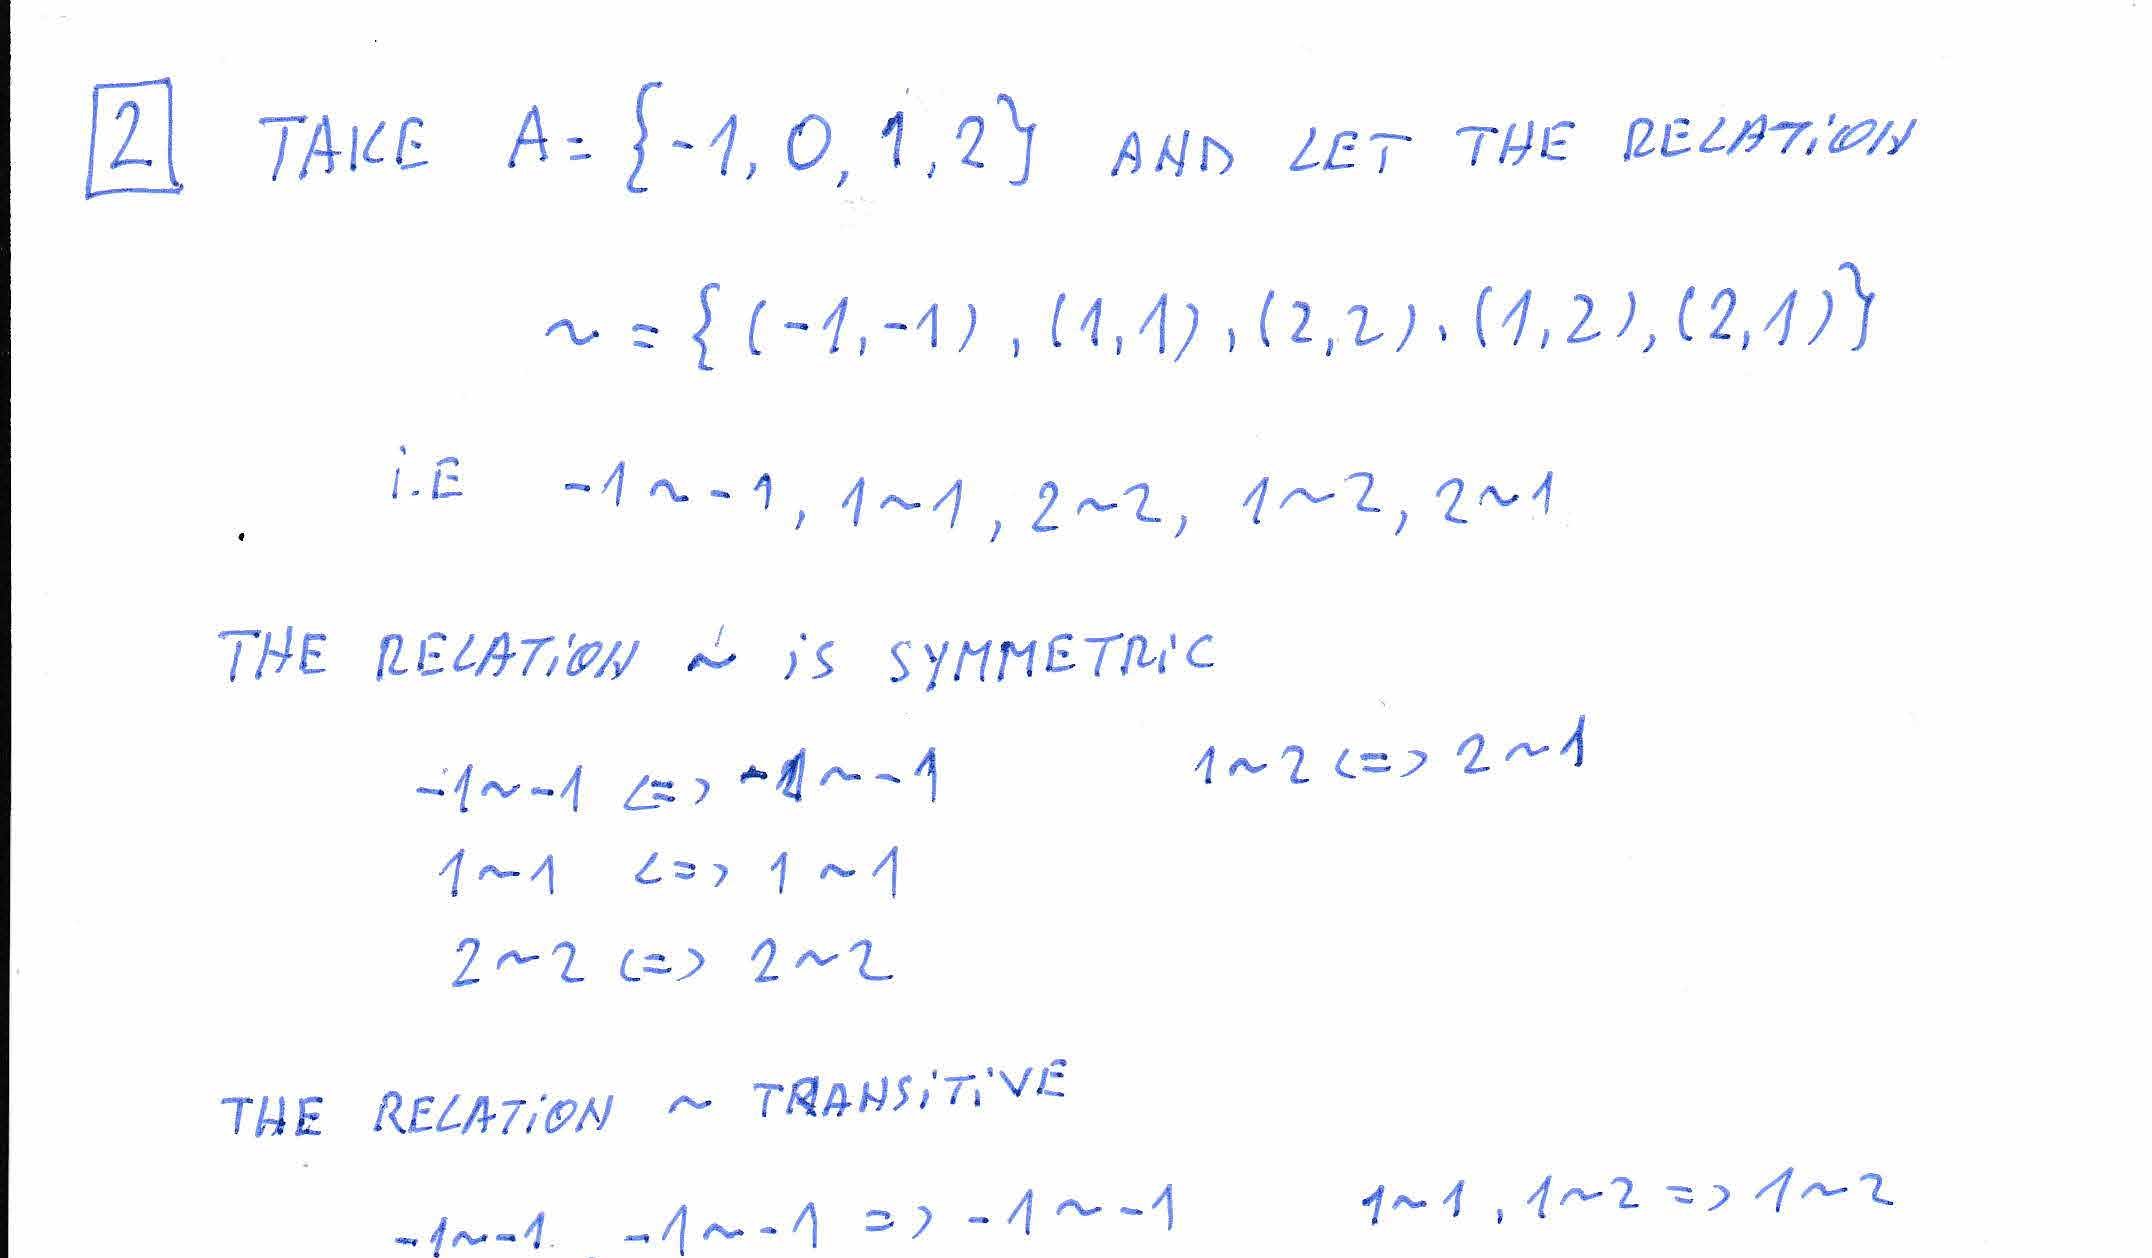 2 TAKE A = {-1, 0, 1, 2} AND LET THE RELATION
~ = {(-1,-1), (1,1), (2,2), (1,2), (2,1)}
i.E -1 ~ -1, 1 ~ 1, 2 ~ 2, 1 ~ 2, 2 ~ 1
THE RELATiON ~ iS SYMMETRiC
-1 ~ -1 <=> -1 ~ -1 1 ~ 2 <=> 2 ~ 1
1 ~ 1 <=> 1 ~ 1
2 ~ 2 <=> 2 ~ 2
THE RELATiON ~ TRANSiTiVE
-1 ~ -1 -1 ~ -1 => -1 ~ -1 1 ~ 1, 1 ~ 2 => 1 ~ 2